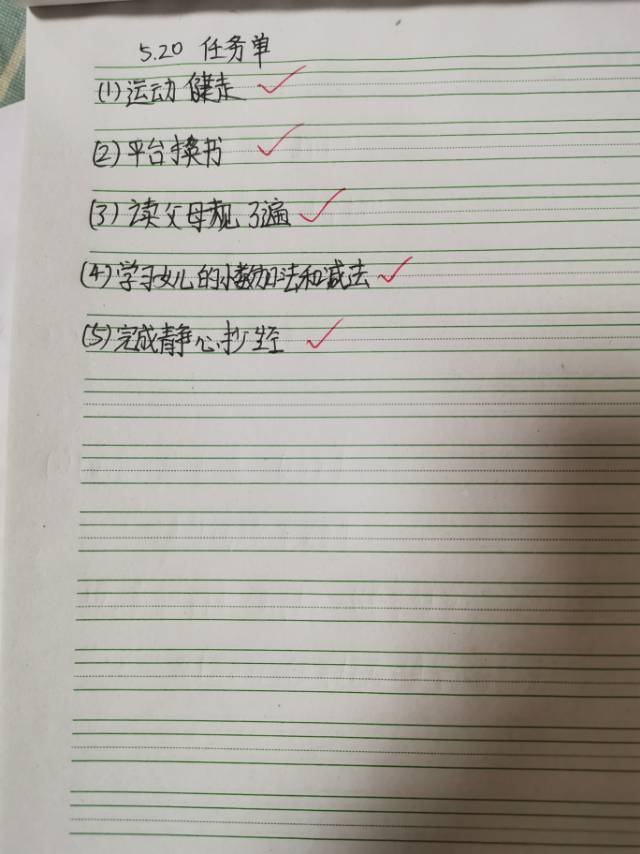 5.20 任务单
(1)运动 健走
(2)平台换书
(3)读父母规 3遍
(4)学习女儿的小数加法和减法
(5)完成静心抄经